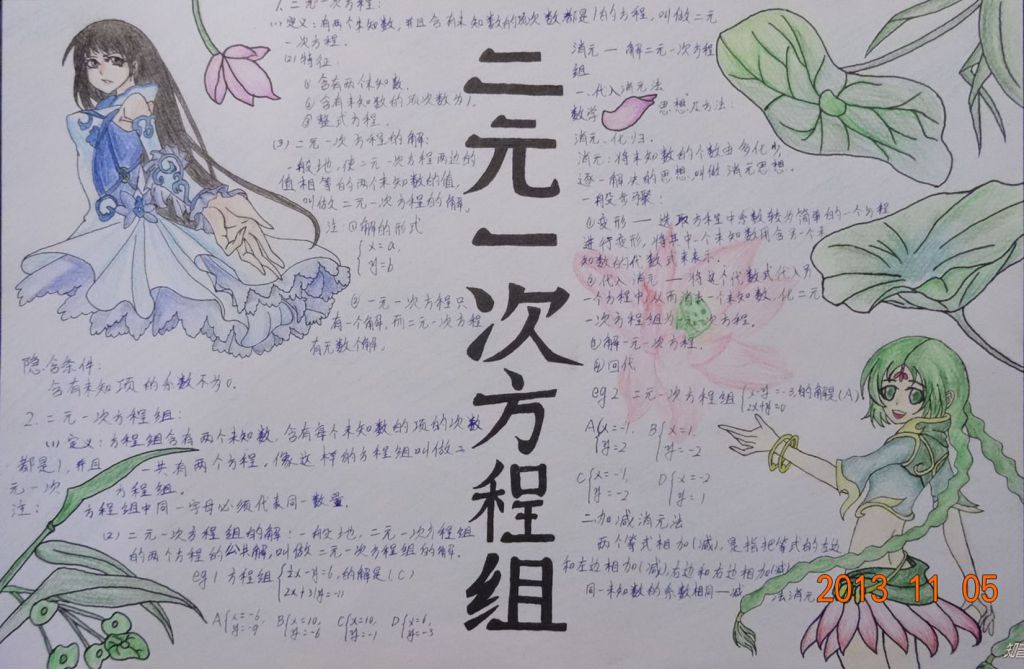 二元一次方程组
1. 二元一次方程:
(1) 定义:有两个未知数,并且含有未知数的项次数都是1的方程,叫做二元
一次方程.
(2) 特征:
① 含有两个未知数.
② 含有未知数的项次数为1.
③ 整式方程.
(3) 二元一次方程的解:
一般地,使二元一次方程两边的
值相等的两个未知数的值,
叫做二元一次方程的解.
注:①解的形式
{x=a,
y=b
② 一元一次方程只
有一个解,而二元一次方程
有无数个解.
隐含条件:
含有未知项的系数不为0.
2. 二元一次方程组:
(1) 定义:方程组含有两个未知数,含有每个未知数的项的次数
都是1,并且 一共有两个方程,像这样的方程组叫做二
元一次 方程组.
注: 方程组中同一字母必须代表同一数量.
(2) 二元一次方程组的解:一般地,二元一次方程组
的两个方程的公共解,叫做二元一次方程组的解.
eg1 方程组{2x-y=6,的解是(C)
2x+3y=-11
A{x=-6, B{x=10, C{x=10, D{x=6,
y=-9 y=-6 y=-1 y=-3
消元——解二元一次方程
组
一.代入消元法
数学 思想及方法:
消元.化归.
消元:将未知数的个数由多化少,
逐一解决的思想,叫做消元思想.
一般步骤:
①变形——选取方程中系数较为简单的一个方程
进行变形,将其中一个未知数用含另一个未
知数的代数式来表示.
②代入消元——将这个代数式代入另
一个方程中,从而消去一个未知数,化二元
一次方程组为一元一次方程.
③解一元一次方程.
④回代
eg2 二元一次方程组{x-y=-3的解是(A)
2x+y=0
A{x=-1, B{x=1,
y=2 y=-2
C{x=-1, D{x=-2
y=-2 y=1
二加减消元法
两个等式相加(减),是指把等式的左边
和左边相加(减),右边和右边相加(减)
同一未知数的系数相同—减 法消元
2013 11 05
知